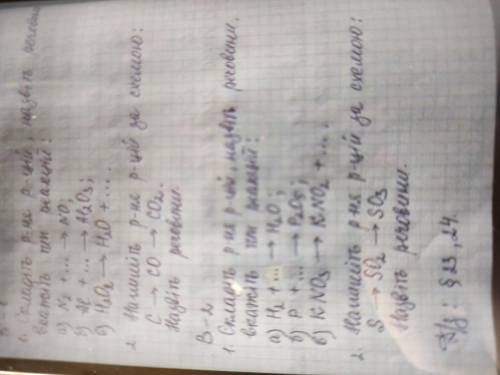 В-1
1. Скласти р-ня р-цій, назвіть речовини
вкажіть тип реакцій:
а) N₂ + ... → NO;
б) Al + ... → Al₂O₃;
в) H₂O₂ → H₂O + ....
2. Напишіть р-ня р-цій за схемою:
C → CO → CO₂.
Назвіть речовини.
В-2
1. Скласти р-ня р-цій, назвіть речовини.
вкажіть тип реакцій:
а) H₂ + ... → H₂O;
б) P + ... → P₂O₅;
в) KNO₃ → KNO₂ + ....
2. Напишіть р-ня р-цій за схемою:
S → SO₂ → SO₃
Назвіть речовини.
Д/з: § 23, 24.